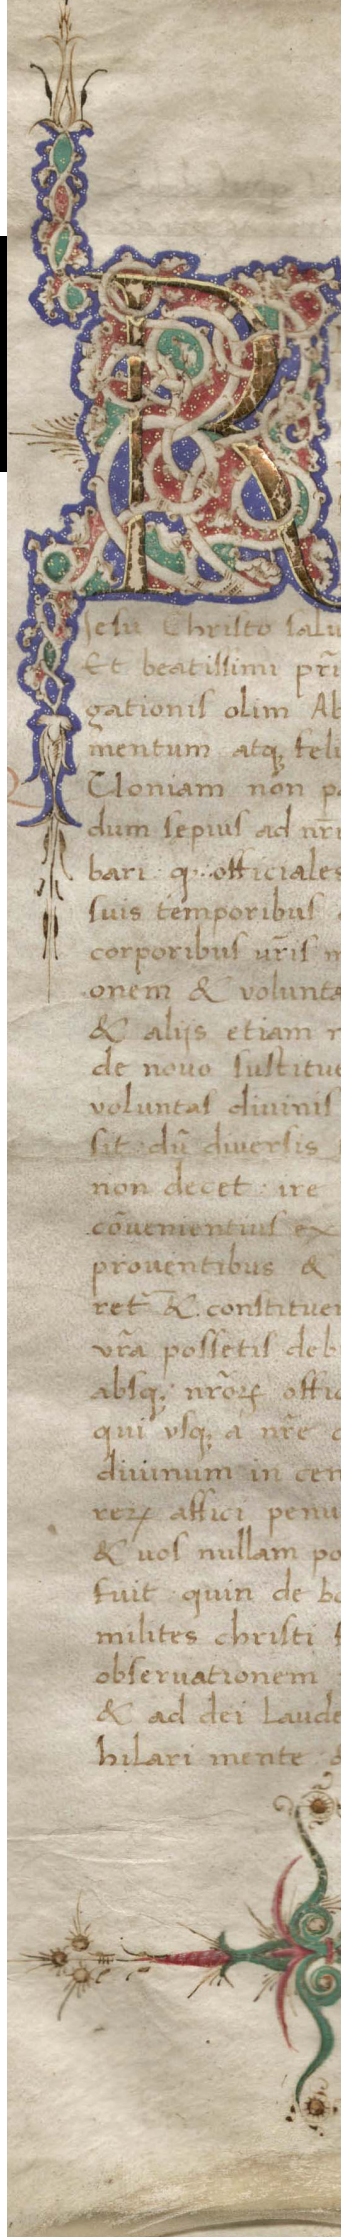 R
Jesu Christo salu
Et beatissimi pr̄i
gationis olim Ab
mentum atqꝫ feli
Cloniam non p
dum sepius ad nr̄
bari officiales
suis temporibus
corporibus ur̄is
onem & volunta
& alijs etiam
de nouo sustitue
voluntas diuinis
sit dū diuersis
non decet ire
cōuenientius ex
prouentibus &
ret R. constituer
vr̄a possetis deb
absqꝫ nr̄oꝝ offic
qui vsqꝫ a nr̄e
diuinum in cen
reꝝ affici penu
& uos nullam po
fuit quin de bo
milites christi
obseruationem
& ad dei laude
hilari mente &